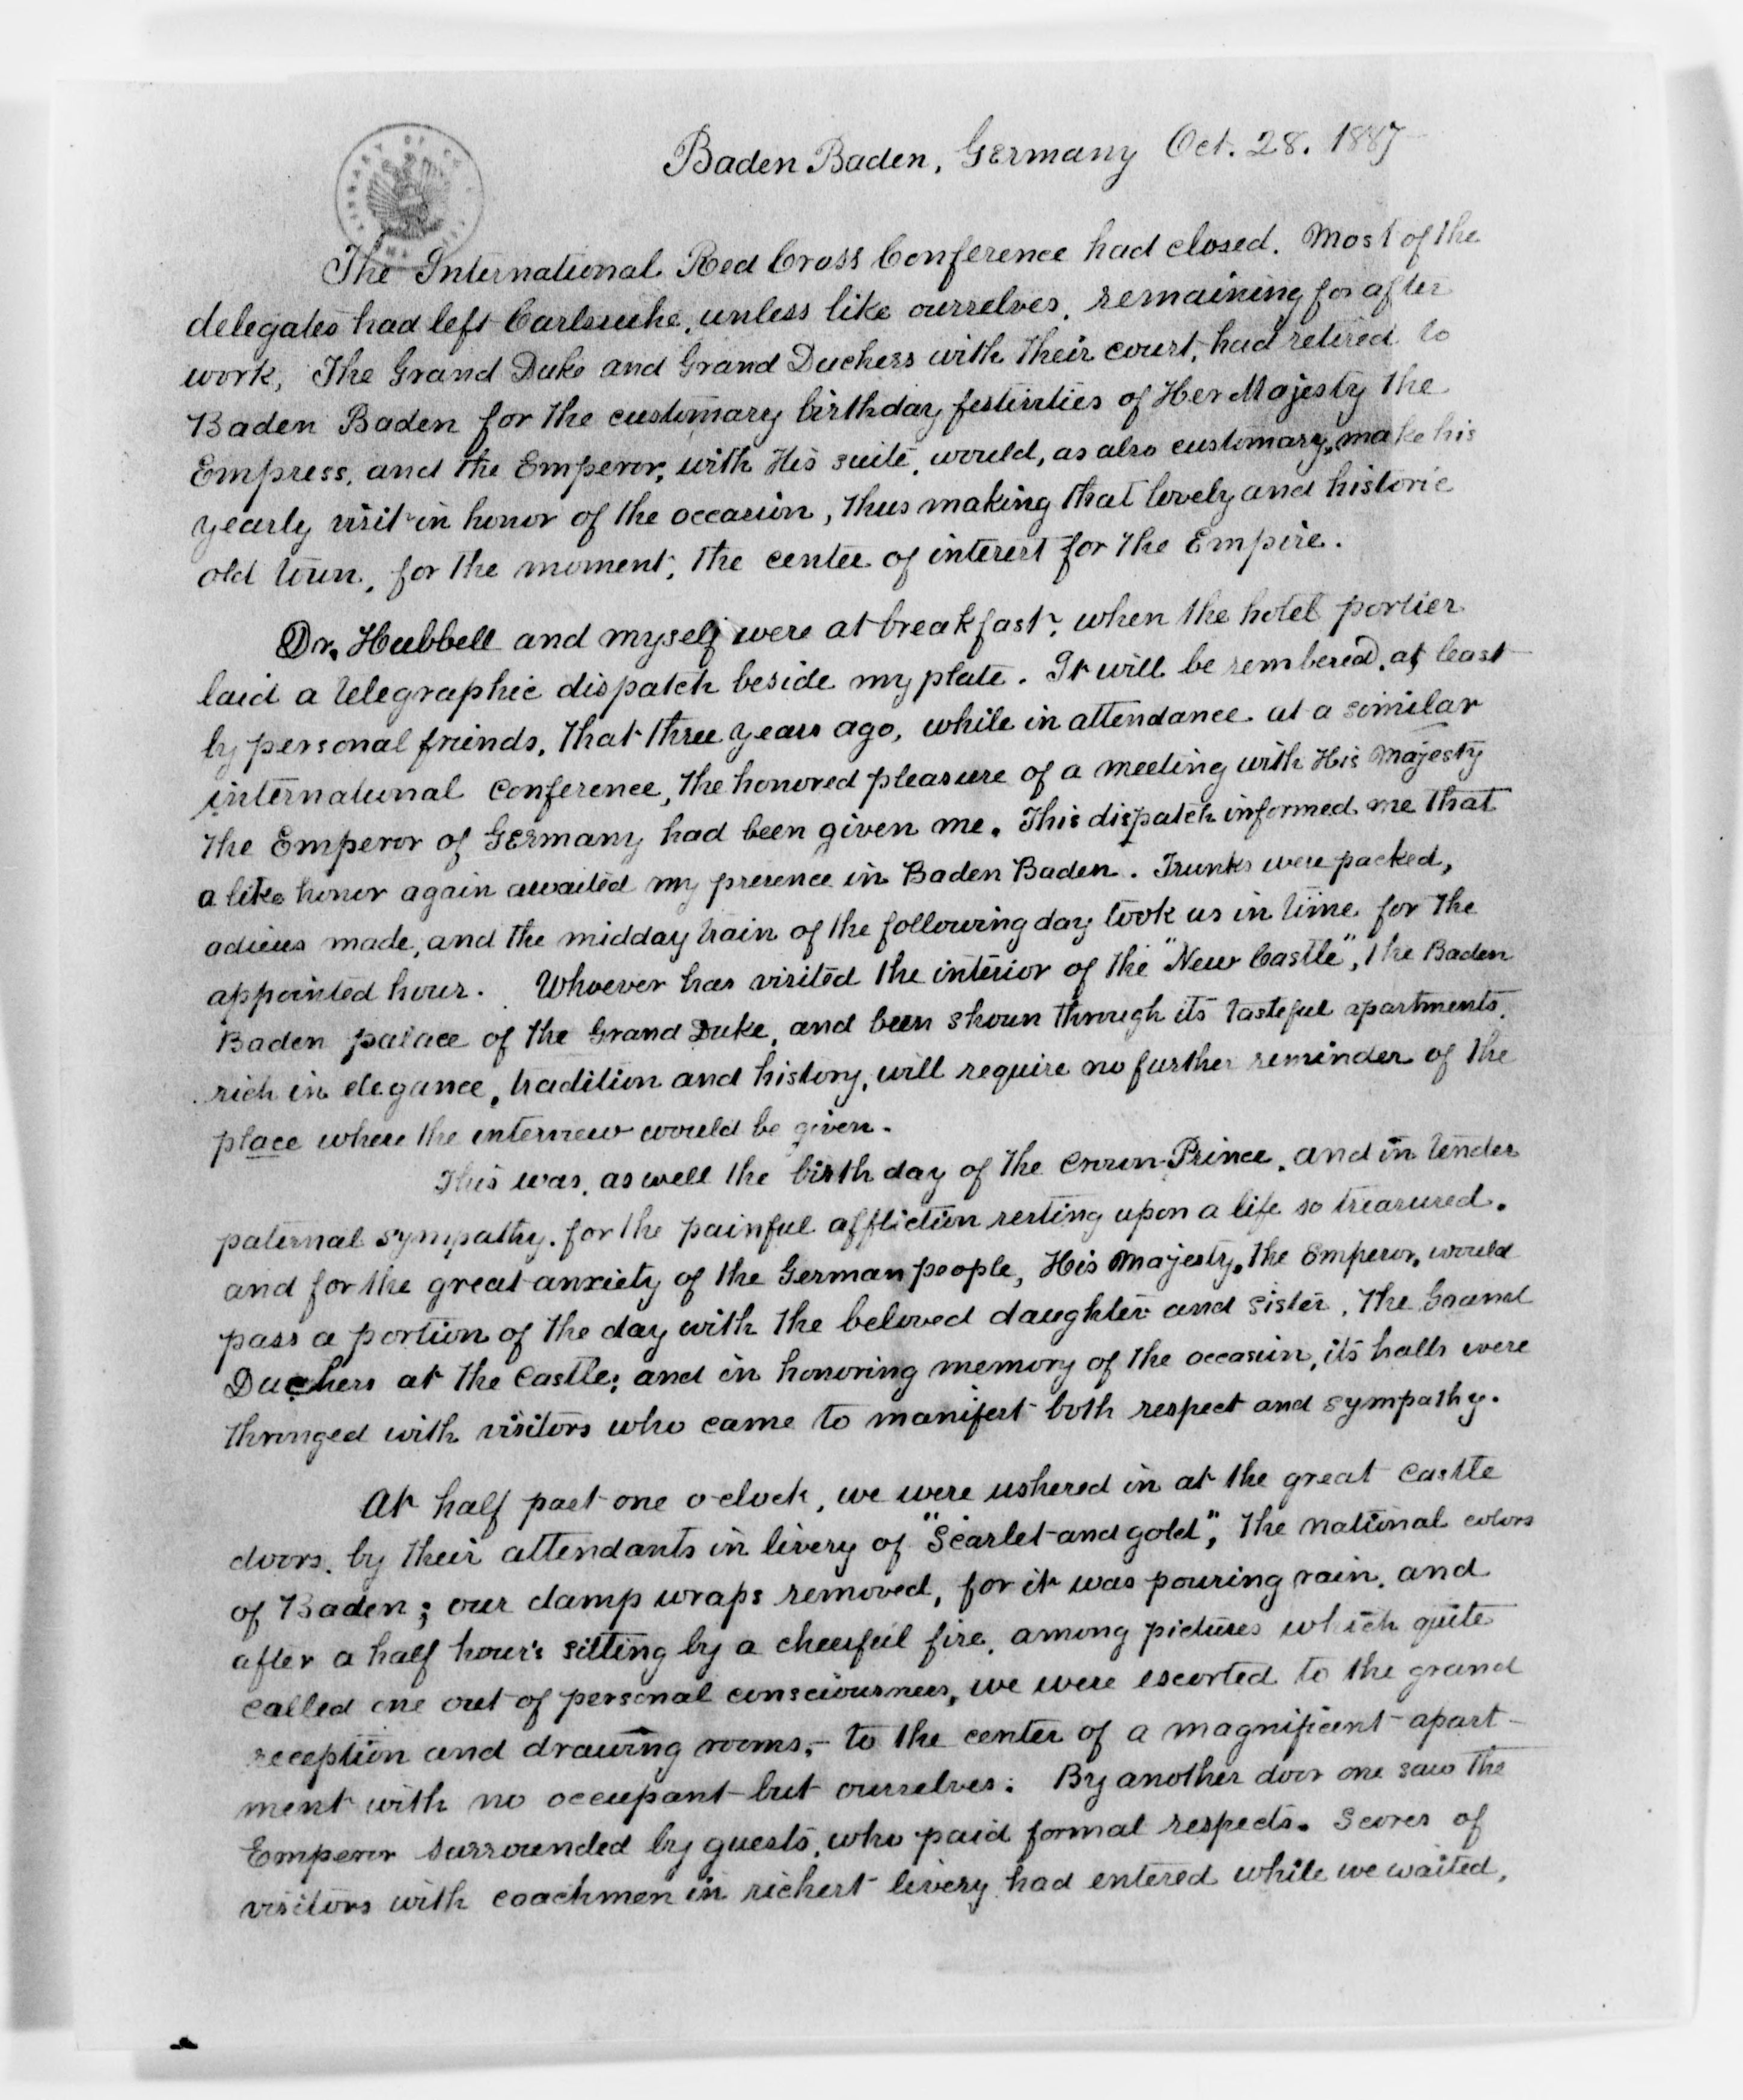 Baden Baden, Germany Oct. 28. 1887
The International Red Cross Conference had closed. Most of the
delegates had left Carlsruhe, unless like ourselves, remaining for after
work, The Grand Duke and Grand Duchess with their court, had retired to
Baden Baden for the customary birthday festivities of Her Majesty the
Empress, and the Emperor, with His suite, would, as also customary, make his
yearly visit in honor of the occasion, thus making that lovely and historic
old town, for the moment, the center of interest for the Empire.
Dr. Hubbell and myself were at breakfast, when the hotel portier
laid a telegraphic dispatch beside my plate. It will be rembered, at least
by personal friends, that three years ago, while in attendance at a similar
international Conference, the honored pleasure of a meeting with His Majesty
the Emperor of Germany had been given me. This dispatch informed me that
a like honor again awaited my presence in Baden Baden. Trunks were packed,
adieus made, and the midday train of the following day took us in time for the
appointed hour. Whoever has visited the interior of the "New Castle", the Baden
Baden palace of the Grand Duke, and been shown through its tasteful apartments,
rich in elegance, tradition and history, will require no further reminder of the
place where the interview would be given.
This was, as well the birth day of the Crown-Prince, and in tender
paternal sympathy, for the painful affliction resting upon a life so treasured,
and for the great anxiety of the German people, His Majesty, the Emperor, would
pass a portion of the day with the beloved daughter and sister, the Grand
Duchess at the Castle; and in honoring memory of the occasion, its halls were
thronged with visitors who came to manifest both respect and sympathy.
At half past one o-clock, we were ushered in at the great Castle
doors, by their attendants in livery of "Scarlet and gold", the national colors
of Baden; our damp wraps removed, for it was pouring rain, and
after a half hour's sitting by a cheerful fire, among pictures which quite
called one out of personal consciousness, we were escorted to the grand
reception and drawing rooms,- to the center of a magnificent apart-
ment with no occupant but ourselves. By another door one saw the
Emperor surrounded by guests, who paid formal respects. Scores of
visitors with coachmen in richest livery had entered while we waited,